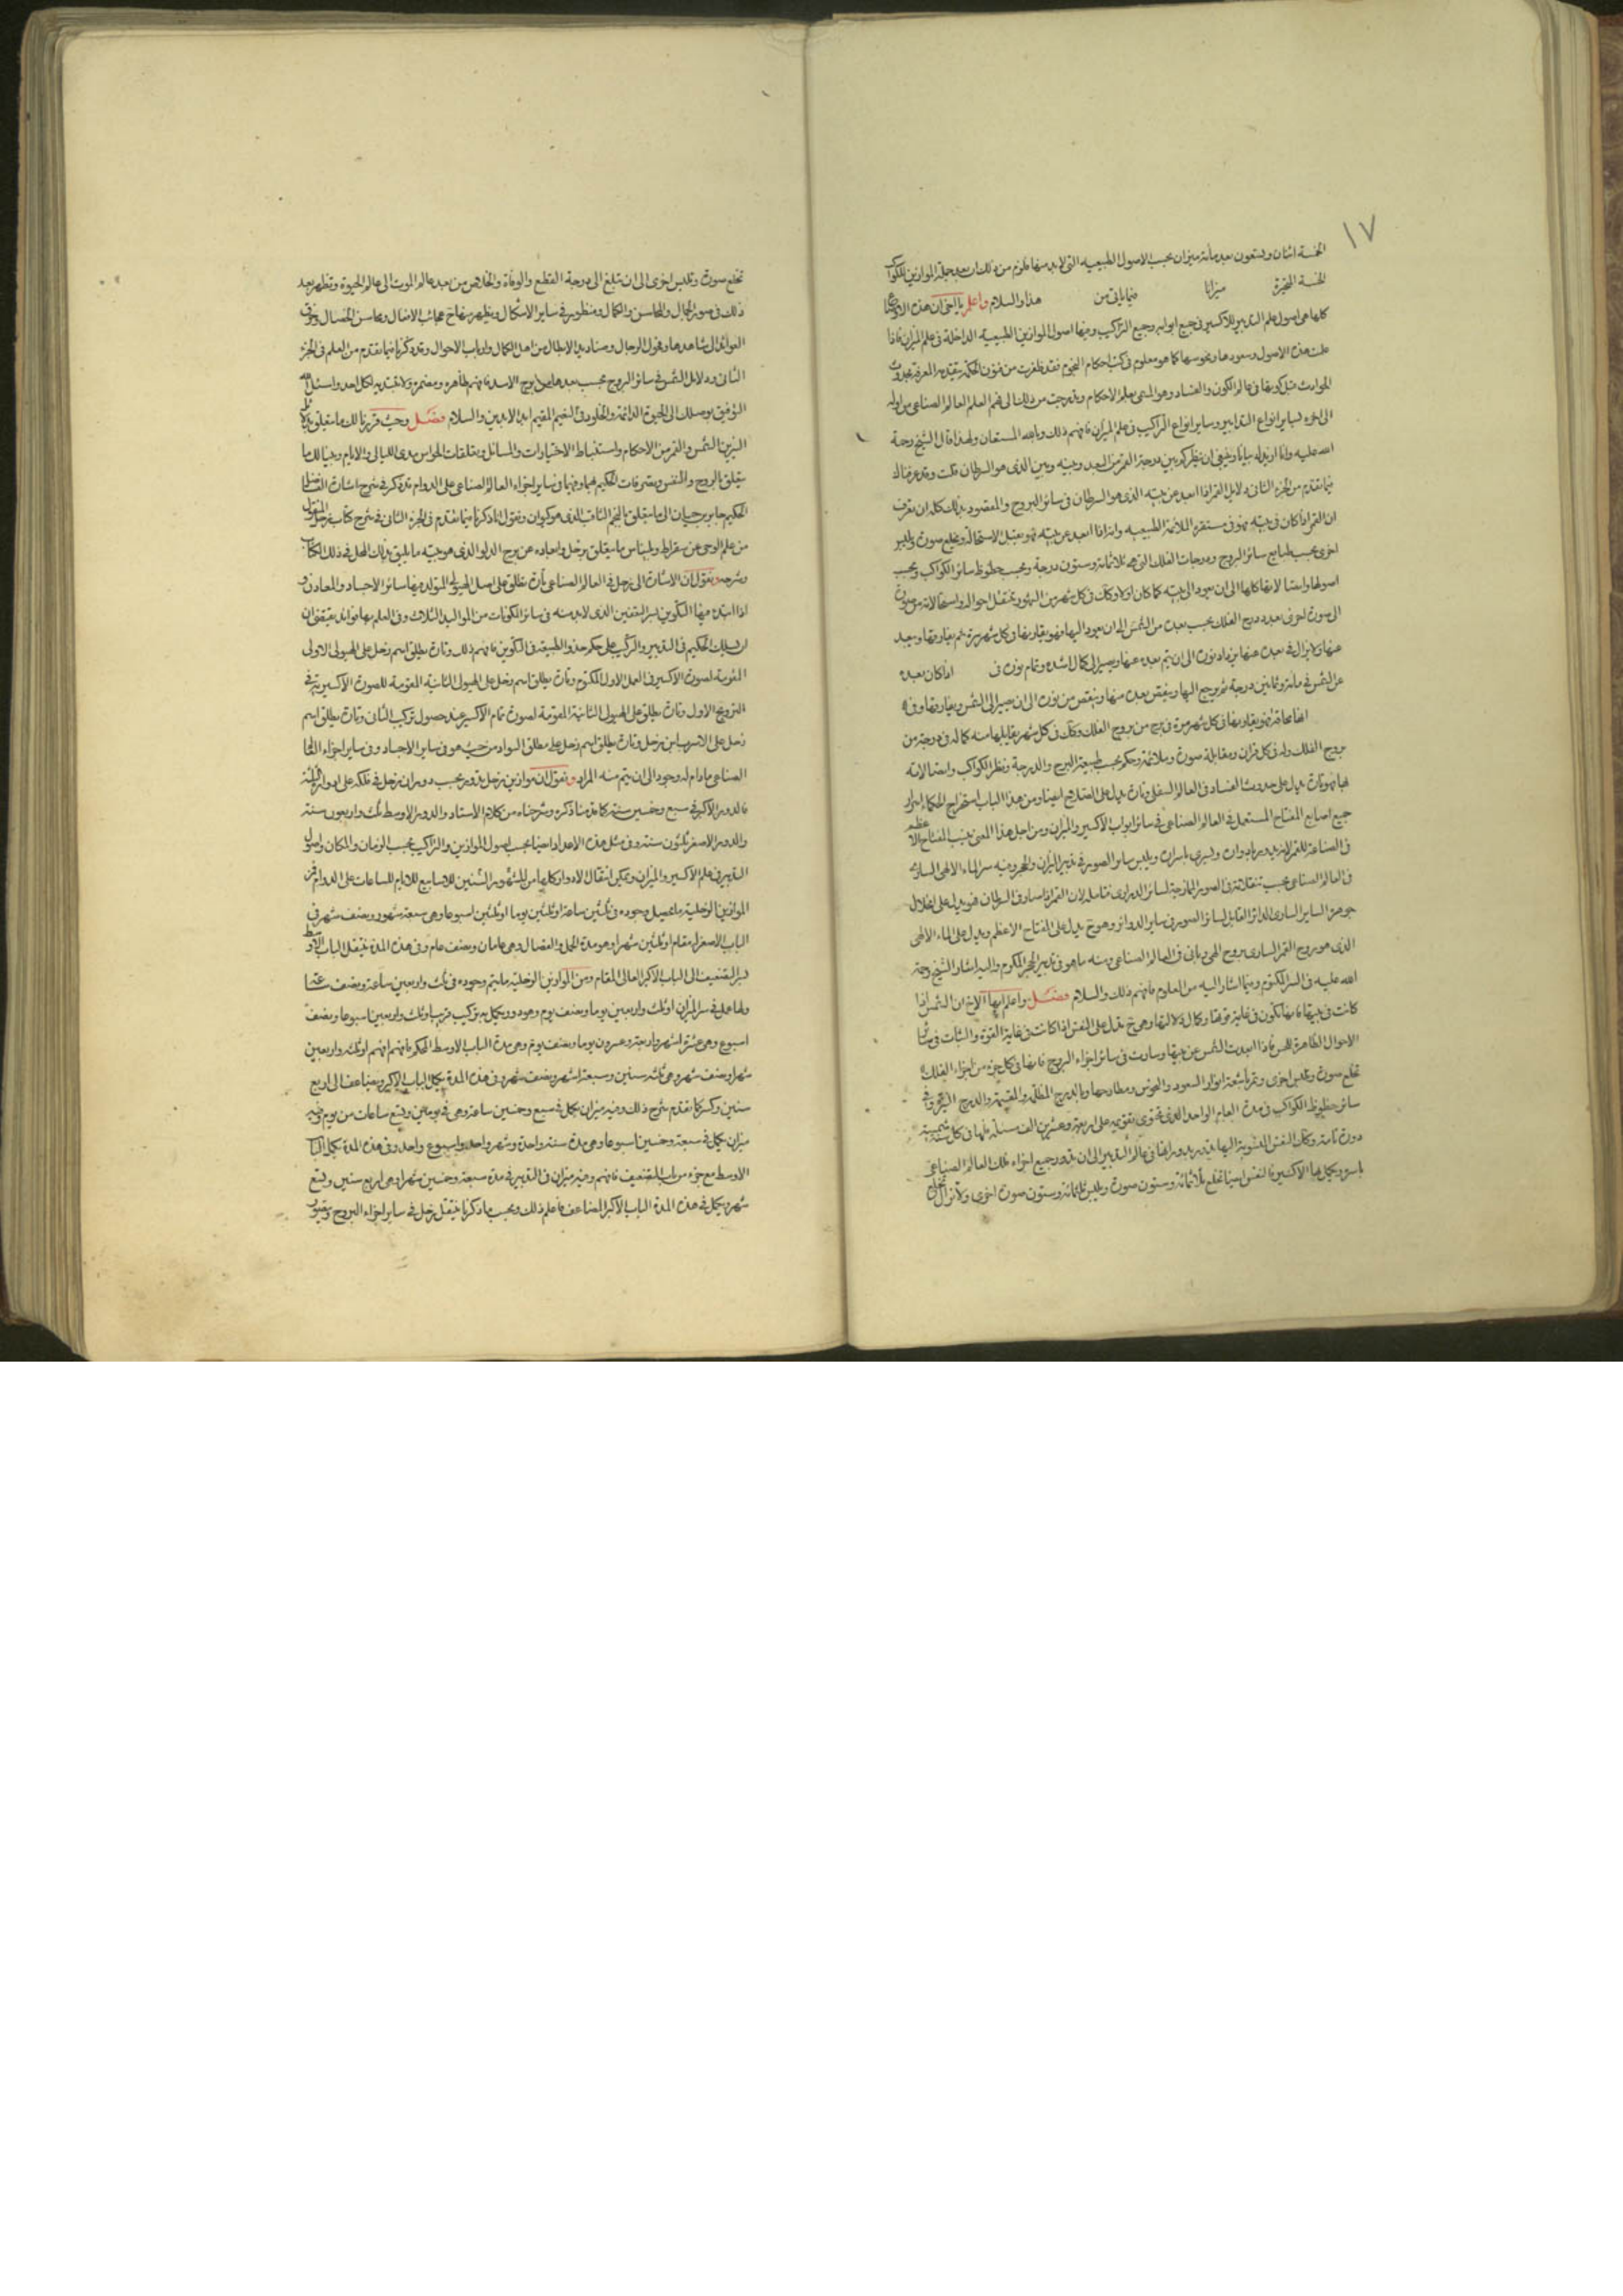 ١٧
الخمسة اثنان وتسعون بعد مأئة ميزان بحسب الاصول الطبيعيه التى لابد منها فلزم من ذلك ان جملة الموازين للكواكب
الخمسة المتحيرة ميزانا فيما ياتى من هذا والسلام واعلم يا اخى ان هذه الاوضاع
كلها هى اصول علم التدبير للاكسير فى جميع ابوابه وجميع التراكيب ومنها اصول الموازين الطبيعيه الداخلة فى علم الميزان فاذا
علمت هذه الاصول وسعودها ونحوسها كما هو معلوم فى كتب احكام النجوم فقد ظفرت من فنون الحكمة بتقدمة المعرفة بحدوث
الحوادث قبل كونها فى عالم الكون والفساد وهو المسمى بعلم الاحكام وتدرجت من ذلك الى فهم العلم العالم الصناعى من اوله
الى اخره لساير انواع التدابير وساير انواع التراكيب فى علم الميزان فافهم ذلك وبالله المستعان ولهذا قال الشيخ رحمة
الله عليه وانا ازيدك بيانا وينبغى ان ينظر كم بين درجة القمر من البعد وبينه وبين الذى هو السرطان قلت وقد عرفناك
فيما تقدم من الجزء الثانى دلايل القمر اذا ابعد عن بيته الذى هو السرطان فى سائر البروج والمقصود بذلك كله ان تعرف
ان القمر اذا كان فى بيته فهو فى مستقره الملائمة الطبيعيه وانه اذا ابعد عن بيته فهو يقبل الاستحالة ويخلع صورة ويلبس
اخرى بحسب طبايع سائر البروج ودرجات الفلك التى هى ثلاثمائة وستون درجة وبحسب حظوظ سائر الكواكب وبحسب
اصولها واتصالاتها كلها الى ان يعود الى بيته كما كان اولا وكذلك فى كل شهر من الشهور ينتقل احواله واستحالاته من صورة
الى صورة اخرى بعدد درج الفلك بحسب بعده من الشمس الى ان يعود اليها فهو يقارنها فى كل شهر مرة ثم يفارقها ويبعد
عنها ولا يزال فى بعده عنها يزداد نوره الى ان يتم بعده عنها ويصير الى كمال اشده وتمام نوره فى اذا كان بعده
عن الشمس فى مائة وثمانين درجة ثم يرجع اليها وينقص بعده منها وينقص من نوره الى ان يصير الى الشمس ويقارنها وفى
انها محاقه فهو يقارنها فى كل شهر مرة فى برج من بروج الفلك وكذلك فى كل شهر يقابلها منه كماله فى درجة من
بروج الفلك وله فى كل قران ومقابلة صورة وملائمة وحكم بحسب طبيعة البرج والدرجة ونظر الكواكب واتصالاته
بها فهو تارة يدل على حدوث الفساد فى العالم السفلى وتارة يدل على الصلاح ايضا ومن هذا الباب استخراج الحكماء اسرار
جميع اصابع المفتاح المستعمل فى العالم الصناعى فى سائر ابواب الاكسير والميزان ومن اجل هذا المعنى ينسب المفتاح الاعظم
فى الصناعة للقمر لانه يدور بادواره ويسرى باسراره ويلبس ساير الصور فى تدبير الميزان والحجر وفيه سر الماء الالهى السارى
فى العالم الصناعى بحسب تنقلاته فى الصور الممازجة لسائر الدرارى فتامله لان القمر اذا صار فى السرطان فهو يدل على انحلال
جوهره الساير السارى الدائر القابل لسائر الصور فى ساير الدوائر وهو ح يدل على المفتاح الاعظم ويدل على الماء الالهى
الذى هو روح القمر السارى بروح الهى ربانى فى العالم الصناعى ومنه ما هو فى تدبير الحجر المكرم واليه اشار الشيخ رحمة
الله عليه فى السر المكتوم وفيما اشار اليه من العلوم فافهم ذلك والسلام فصــل واعلم ايها الاخ ان الشمس اذا
كانت فى بيتها فانها تكون فى غاية قوتها وكمال دلالتها وهى ح تدل على النفس اذا كانت فى غاية القوة والثبات فى سائر
الاحوال الظاهرة للحس فاذا ابعدت الشمس عن بيتها وسارت فى سائر اجزاء البروج فانها فى كل جزء من اجزاء الفلك
تخلع صورة وتلبس اخرى وتمر باشعة انوار السعود والنحوس ومطارحها وبالدرج المظلمة والمضيئة والدرج
سائر حظوظ الكواكب فى مدة العام الواحد الذى تحتوى تقويمه على اربعة وعشرين الف مسئلة فلها فى كل سنة شمسية
دورة تامة وكذلك النفس المنسوبة اليها بتدبير يدور ايضا فى عالم التدبير الى ان تدور جميع اجزاء ذلك العالم الصناعى
باسره ويكمل بها الاكسير فالنفس ايضا تخلع ثلاثمائة وستون صورة وتلبس ثلثمائة وستون صورة اخرى ولا تزال تخلع
تخلع صورة وتلبس اخرى الى ان تبلغ الى درجة القطع والوفاة والخلاص من بعد عالم الموت الى عالم الحيوة وتظهر بعد
ذلك فى صورة الجمال والمحاسن والكمال ومنظور فى ساير الاشكال ويظهر منها ح عجائب الافعال ومحاسن الخصال وخرق
العوائد ال شاهدها وفحول الرجال وصناديد الابطال من اهل الكمال وارباب الاحوال وقد ذكرنا فيما تقدم من العلم فى الجزء
الثانى ودلايل الشمس فى سائر البروج بحسب بعدها من برج الاسد فافهم ظاهره ومضمره ولا تبتديه لكل احد واسئل الله
التوفيق يوصلك الى الحيوة الدائمة والخلود فى النعيم المقيم ابد الابدين والسلام فصــل وحيث قررنا لك ما يتعلق بدلايل
النيرين الشمس والقمر من الاحكام واستنباط الاختيارات والمسائل وتعلقات الحواس مدى الليالى والايام وبينا لك ما
يتعلق بالروح والنفس وتصرفات الحكيم فيها وفى ساير اجزاء العالم الصناعى على الدوام نذكر فى شرح اشارة الفاضل
الحكيم جابر بن حيان الى ما يتعلق بالنجم الثاقب الذى هو كيوان ونقول انا ذكرنا فيما تقدم فى الجزء الثانى فى شرح كتاب زحل المنقول
من علم الوحى عن سقراط وبليناس ما يتعلق بزحل وابعاده عن برج الدلو الذى هو بيته ما يليق بذلك المحل فى ذلك الكتاب
وشرحه ونقول ان الاشارة الى زحل فى العالم الصناعى تارة تطلق على اصل الهيولى المتولد فيها سائر الاجساد والمعادن و
اذا ابتداء فيها التكوين بسر التعفين الذى لابد منه فى سائر المكونات من المواليد الثلاث وفى العلم بها فوايد يقتضى ان
يسلك الحكيم فى التدبير والتركيب على حكم حذو الطبيعة فى التكوين فافهم ذلك وتارة يطلق اسم زحل على الهيولى الاولى
المقومة لصورة الاكسير فى العمل الاول المكتوم وتارة يطلق اسم زحل على الهيولى الثانية المقومة للصورة الاكسيرية فى
التزويج الاول وتارة يطلق على الهيولى الثانية المقومة لصورة تمام الاكسير عند حصول تركيب الثانى وتارة يطلق اسم
زحل على الاسرب ابن زحل وتارة يطلق اسم زحل على مطلق السواد من حيث هو فى ساير الاجساد وفى ساير اجزاء العالم
الصناعى مادام له وجود الى ان يتم منه المراد ونقول ان موازين زحل تدور بحسب دوران زحل فى فلكه على ادواره الثلثة
فالدور الاكبر فى سبع وخمسين سنة كما قدمنا ذكره وشرحناه من كلام الاستاد والدور الاوسط ثلث واربعون سنة
والدور الاصغر ثلثون سنة وفى مثل هذه الاعداد ايضا بحسب اصول الموازين والتراكيب بحسب الزمان والمكان واصول
التدبير فى علم الاكسير والميزان ويمكن انتقال الادوار كلها من الشهور السنين للاسابيع للايام للساعات على الدوام فمن
الموازين الزحلية ما يحصل وجوده فى ثلثين ساعة او ثلثين يوما او ثلثين اسبوعا وهى سبعة شهور ونصف شهر فى
الباب الاصغر لمقام او ثلثين شهرا وهو مدة الحمل والفصال وهى عامان ونصف عام وفى هذه المدة ينتقل الباب الاوسط
بسر التضعيف الى الباب الاكبر العالى المقام ومن الموازين الزحلية ما يتم وجوده فى ثلث واربعين ساعة ونصف ساعة
ولها عمل فى سر الميزان او ثلث واربعين يوما ونصف يوم وهو دور يكمل به تركيب قريب او ثلث واربعين اسبوعا ونصف
اسبوع وهى عشرة اشهر واربعة وعشرون يوما ونصف يوم وهى مدة الباب الاوسط المحكم فافهم افهم او ثلثه واربعين
شهرا ونصف شهر وهى ثلثه سنين وسبعة اشهر ونصف شهر وفى هذه المدة يكمل الباب الاكبر ويضاعف الى اربع
سنين وكسر كما تقدم شرح ذلك وفيه ميزان يكمل فى سبع وخمسين ساعة وهى فى يومين وتسع ساعات من يوم وفيه
ميزان يكمل فى سبعة وخمسين اسبوعا وهى مدة سنة واحدة وشهر واحد واسبوع واحد وفى هذه المدة يكمل الباب
الاوسط مع جزء من باب التضعيف فافهم وفيه ميزان فى التدبير فى مدة سبعة وخمسين شهرا وهى اربع سنين وتسع
شهر ويكمل فى هذه المدة الباب الاكبر المضاعف فاعلم ذلك وبحسب ما ذكرنا ينتقل زحل فى ساير اجزاء البروج